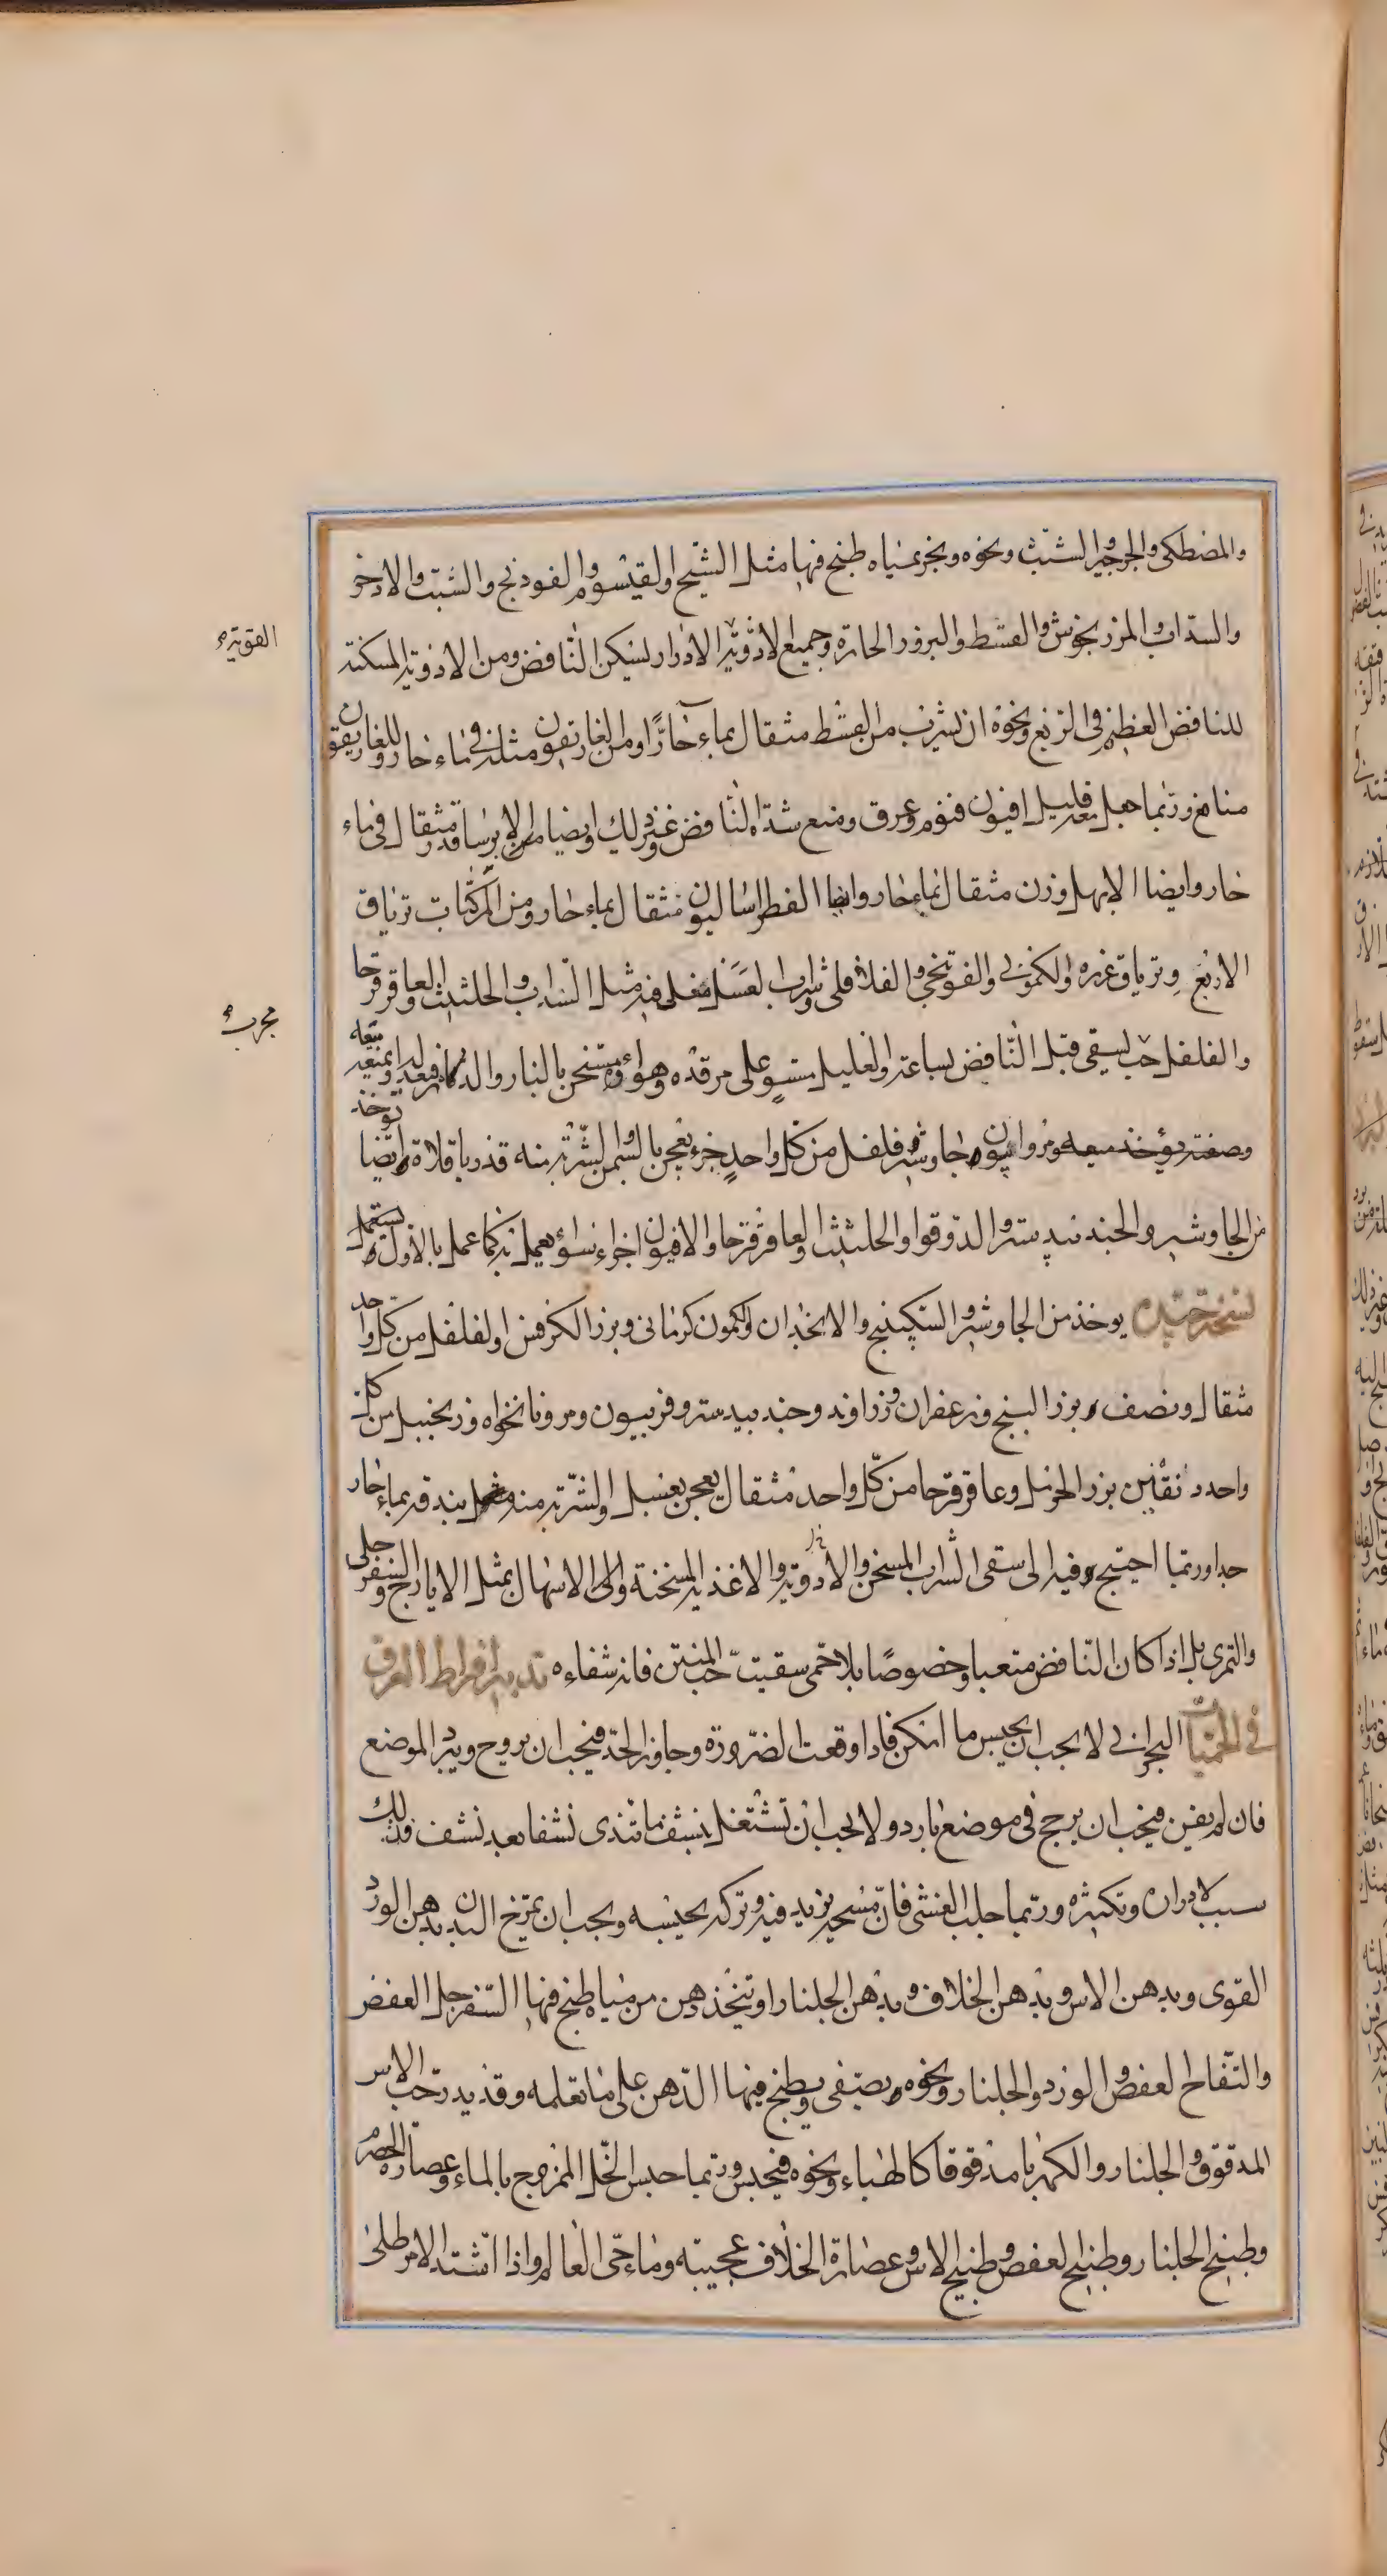 والمصطكى والجوجير والشبث ونحوه وبخر بمياه طبخ فيها مثل الشيح والقيسوم والفودنج والشبت والاذخر
والسذاب والمرزنجوش والقسط والبزور الحارة وجميع الادوية الادرار ليسكن النافض ومن الادوية المسكنة
القوية
للنافض العظيم في الربع ونحوه ان يشرب من القسط مثقال بماء حار او من الغاريقون مثله في ماء حار وللغاريقون
منافع وربما جعل معه قليل افيون فنوم وعرق ومنع شدة النافض وغير ذلك وايضا من الايرسا قدر مثقال في ماء
حار وايضا الابهل وزن مثقال بماء حار وايضا الفطراساليون مثقال بماء حار ومن المركبات ترياق
الاربع وترياق عزره والكموني والفوتنجي والفلافلى وشراب العسل مغلى فيه مثل السذاب والحلتيت والعاقرقرحا
مجرب
والفلفل حب يسقى قبل النافض بساعة والعليل مستو على مرقده وهواؤه مسخن بالنار والدثار فيعدله او يمنعه
وصفته يؤخذ ميعه ومر وافيون وجاوشير فلفل من كل واحد جزء يعجن بالسمن الشربة منه قدر باقلاة وايضا يؤخذ
من الجاوشير والجندبيدستر والدوقوا والحلتيت والعاقرقرحا والافيون اجزاء سواء يعمل به كما عمل بالاول يستعمل
نسخة جيده يوخذ من الجاوشير والسكبينج والانجدان والكمون كرمانى وبزر الكرفس والفلفل من كل واحد
مثقال ونصف وبزر البنج وزعفران وزراوند وجندبيدستر وفربيون ومر ونانخواه وزنجبيل من كل
واحد دانقين بزر الحرمل وعاقرقرحا من كل واحد مثقال يعجن بعسل والشربة منه مثل بندقه بماء حار
جدا وربما احتيج فيه الى سقى الشراب المسخن والادوية والاغذية المسخنة والى الاسهال بمثل الايارج والسفرجلى
والتمرى بل اذا كان النافض متعبا وخصوصا بلا حمى سقيت حب المنتن فانه شفاءه تدبير افراط العرق
في الحميات البحراني لا يجب ان يحبس ما امكن فاذا وقعت الضرورة وجاوز الحد فيجب ان يروح ويبرد الموضع
فان لم يغن فيجب ان يرجع في موضع بارد ولا يجب ان تشتغل بنشف ما تندى نشفا بعد نشف فذلك
سبب لادراره وتكثيره وربما جلب الغشى فان مسحه يزيد فيه وتركه يحبسه ويجب ان يمرخ البدن بدهن الورد
القوى وبدهن الاس وبدهن الخلاف وبدهن الجلنار او تتخذ دهن من مياه طبخ فيها السفرجل العفص
والتفاح العفص والورد والجلنار ونحوه يصفى ويطبخ فيها الدهن على ما تعلمه وقد يدر حب الاس
المدقوق والجلنار والكهربا مذقوقا كالهباء ونحوه فيحبس وربما حبس الخل الممزوج بالماء وعصارة الحصرم
وطبيخ الجلنار وطبيخ العفص وطبيخ الاس وعصارة الخلاف عجيبه وماء حى العالم واذا اشتد الامر طلى